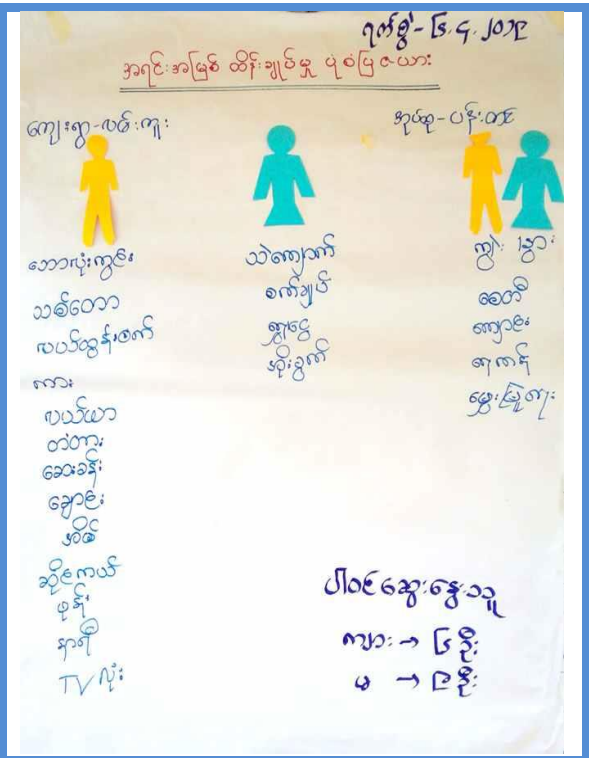 ရက်စွဲ - ၆.၄.၂၀၁၉
အရင်းအမြစ် ထိန်းချုပ်မှု ပုံစံပြဇယား
ကျေးရွာ - လမ်းကူး
အုပ်စု - ပန်းတင်
ဘောလုံးကွင်း
သစ်တော
လယ်ထွန်စက်
ကား
လယ်ယာ
တံတား
ဆေးခန်း
ချောင်း
အိမ်
ဆိုင်ကယ်
ဖုန်း
နာရီ
TV လုံး
သဲကျောက်
စက်ချုပ်
ရွှေငွေ
အိုးခွက်
ကျွဲ၊ နွား
စေတီ
ကျောင်း
ရေကန်
မွေးမြူရေး
ပါဝင်ဆွေးနွေးသူ
ကျား → ၆ ဦး
မ → ၉ ဦး